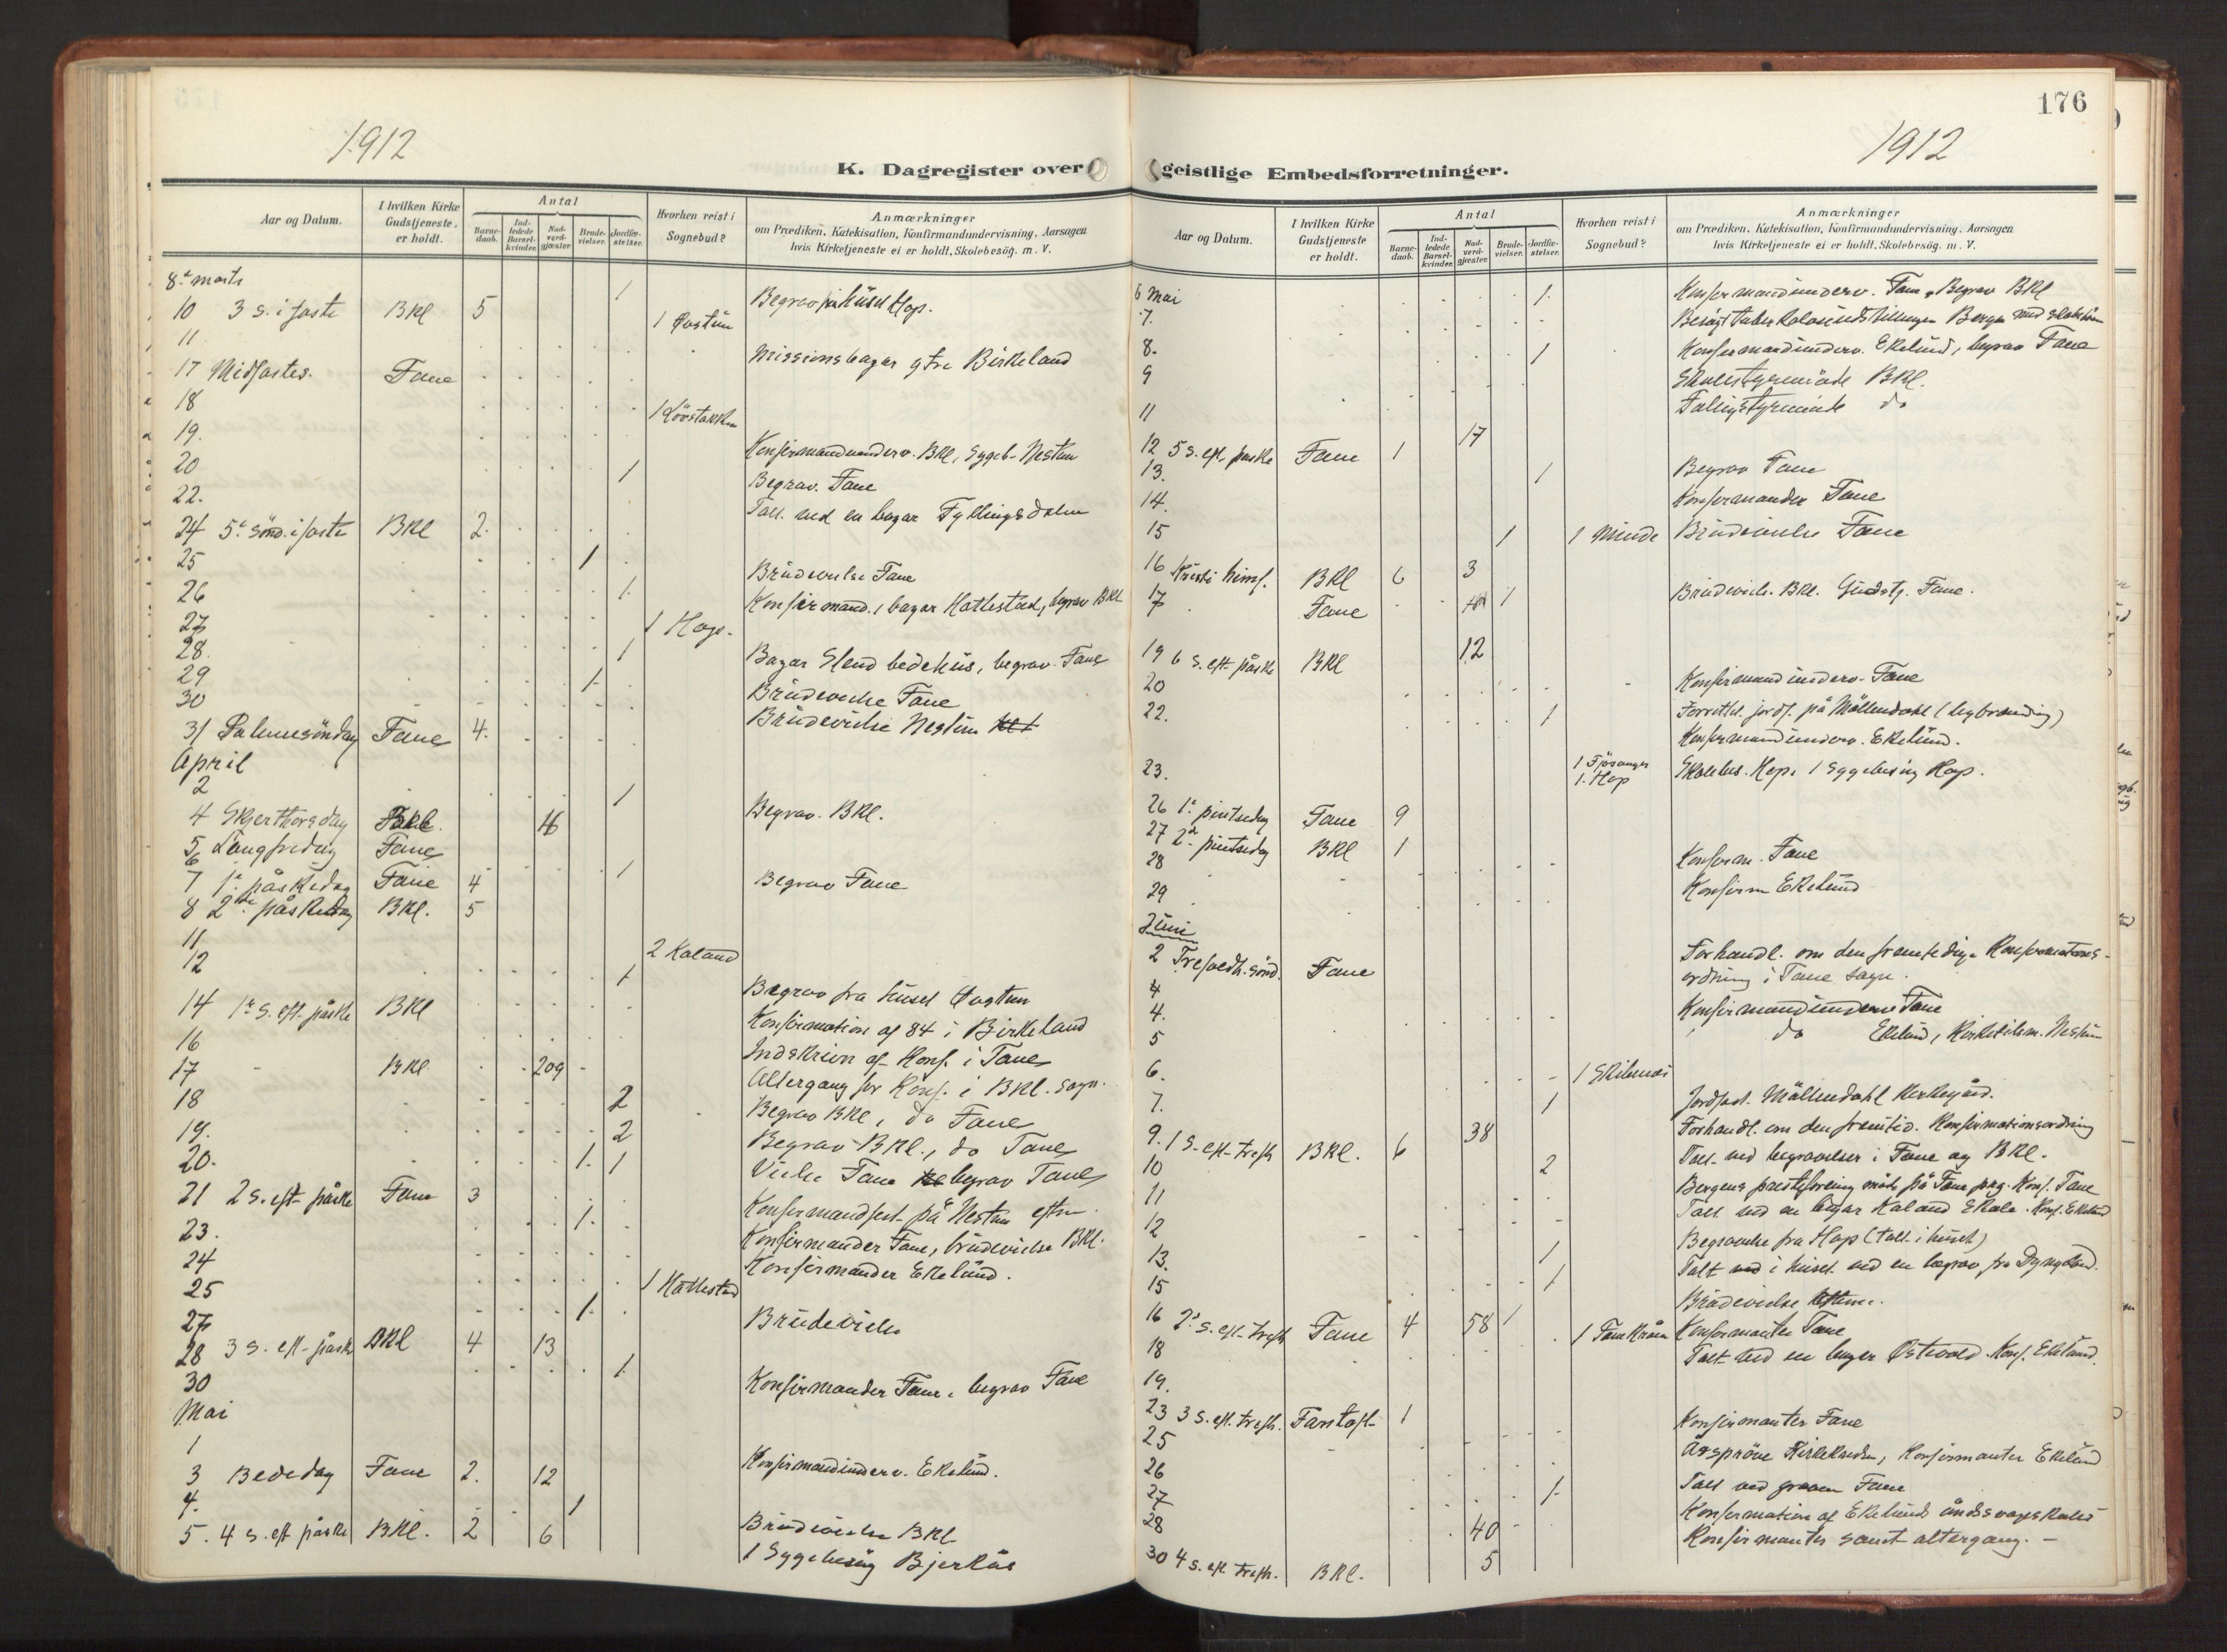 176
1912
1912
K. Dagregister over
geistlige Embedsforretninger.
Aar og Datum.
I hvilken Kirke Gudstjeneste er holdt.
Antal
Barne-daab.
Ind-ledede Barsel-kvinder.
Nad-verd-gjæster
Brude-vielser.
Jordfæ-stelser.
Hvorhen reist i Sognebud?
Anmærkninger
om Prædiken, Katekisation, Konfirmandundervisning, Aarsagen
hvis Kirketjeneste ei er holdt, Skolebesög. m. V.
8de marts 1 Begrav fra huset Hop.
10 3 S. i faste BKl 5
11 1
17 Midfastes. Fane Missionsbazar gtre Birkeland
18 1 Lövstakken
19. Konfirmandunderv. BKl, Sygeb. Nestun
20 1 Begrav. Fane
22. Talt ved en bazar Fyllingsdalen
24 5te sönd. i faste BKl 2.
25 1 Brüdevielse Fane
26 1. Konfirmand., bazar Hattestad, begrav BKl
27 1 Hop.
28. 1 Bazar Slend bedehüs, begrav. Fane
29 1. Brüdevielse Fane
30 Brüdevielse Nestün
31 Palmesöndag Fane 4.
April
2 1 Begrav. BKl.
4 Skjerthorsdag 16
5 Langfredag Fane
6 1 Begrav Fane
7 1te påskedag Fane 4
8 2den påskedag BKl. 5
11 2 Kaland
12 1 Begrav fra huset
14 1te S. eft. påske BKl Konfirmation af 84 i Birkeland
16 Indskrivn af Konf. i Fane
17 BKl 209 Altergang for Konf. i BKl. sogn.
18 2 Begrav BKl, do Fane
19. 2 Begrav BKl., do Fane
20. 1. 1 Vielse Fane begrav Fane
21 2 S. eft. påske Fane 3 Konfirmandfest på Nestun
23. 1. Konfirmander Fane, brüdevielse BKl.
24 Konfirmander Ekelünd.
25 1 Hattestad
27 1. Brüdevielse
28 3 S. eft. påske BKl 4 13
30 1. Konfirmander Fane, begrav Fane
Mai
1 Konfirmandunderv. Ekelünd.
3 Bededag Fane 2. 12
4. 1 Brüdevielse BKl
5. 4 S. eft påske BKl. 2 6 1 Sygebesög Bjerkås
Aar og Datum.
I hvilken Kirke Gudstjeneste er holdt.
Antal
Barne-daab.
Ind-ledede Barsel-kvinder.
Nad-verd-gjæster.
Brude-vielser.
Jordfæ-stelser.
Hvorhen reist i Sognebud?
Anmærkninger
om Prædiken, Katekisation, Konfirmandundervisning, Aarsagen
hvis Kirketjeneste ei er holdt, Skolebesög. m. V.
6 Mai 1. Konfirmandunderv. Fane, Begrav BKl
7. Besögt Bergen
8. 1 Konfirmandünderv. Ekelünd, begrav Fane
9 Skolestyremöde BKl.
11 do
12 5 S. eft. paske Fane 1 17
13. 1 Begrav Fane
14. Konfirmander Fane
15 1 1 Minde Brüdevielse Fane
16 Kristi himf. BKl 6 3
17 Fane 1 Brüdevielse. BKl. Gudstj. Fane.
19 6 S. eft. påske BKl 12
20 Konfirmandunderv. Fane
22. 1 Forrettet jordf. på Möllendahl (ligbrænding)
Konfirmandunderv. Ekelünd.
23. 1 Fjösanger 1. Hop Skolebes. Hop. 1 Sygebesög Hop.
26 1te pintsedag Fane 9
27 2den pintsedag BKl 1
28 Konfirm. Fane
29 Konfirm Ekelünd
Jüni
2 Trefoldh. sönd. Fane Forhandl. om den fremtidige Konfirmations-
ordning i Fane sogn.
4 Konfirmandünderv Fane
4. do Ekelünd, Nestün
5
6. 1
7. 1 Jordfæst. Möllendahl kirkegård.
9. 1 S. eft. Trefh BKl. 6 38 Forhandl. om den fremtid. Konfirmationsordning
10 2 Talt ved begravelser i Fane og BKl.
11 Bergens præsteforening möde på Fane prg. Konf. Fane
12 Talt ved en bazar Kaland Skole. Konf. Ekelund
13. 1 Begravelse fra Hop (talt i huset)
15 1 Talt i huset ved en begrav fra
16 2den S. eft. Trefh Fane 4 58 1 Brüdevielse
18 1 Fanekråen Konfirmanter Fane
19. Talt ved en bazar Östvold. Konf. Ekelünd.
23 3 S. eft. trefh. Fantoft 1
25 Konfirmanter Fane
26 Årspröve, Konfirmanter Ekelünd
27 1. Talt ved graven Fane
28 40 Konfirmation af Ekelunds åndssvageskoles
30 4 S. eft. Trefh. BKl. 5 Konfirmanter samt altergang. —